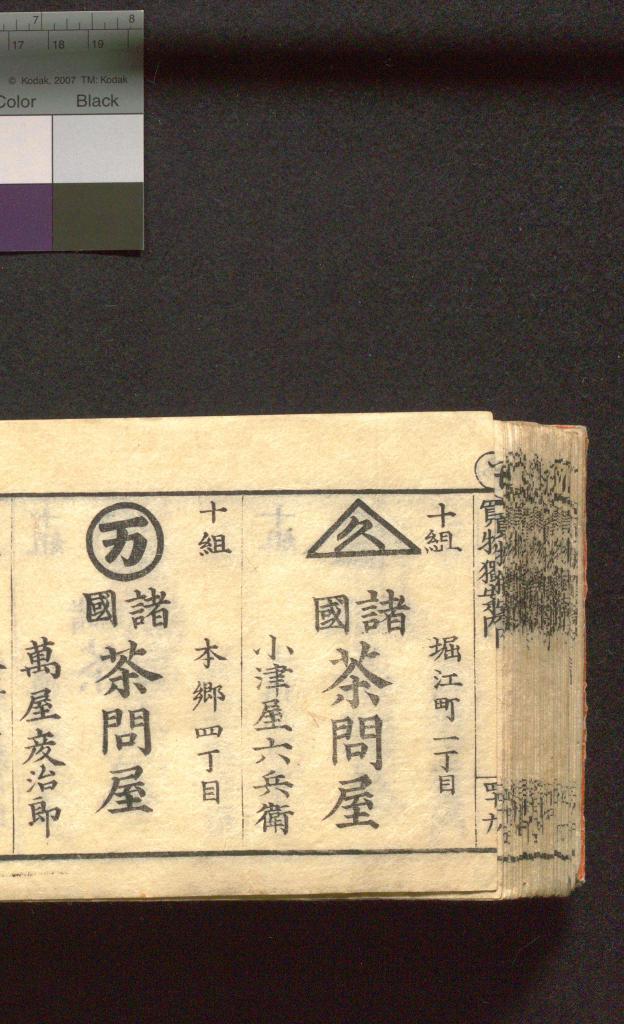 7 8
17 18 19
© Kodak, 2007 TM: Kodak
Color Black
買物獨案内
四十九
十組
堀江町一丁目
久
諸國
茶問屋
小津屋六兵衛
十組
本郷四丁目
万
諸國
茶問屋
萬屋彦治郎